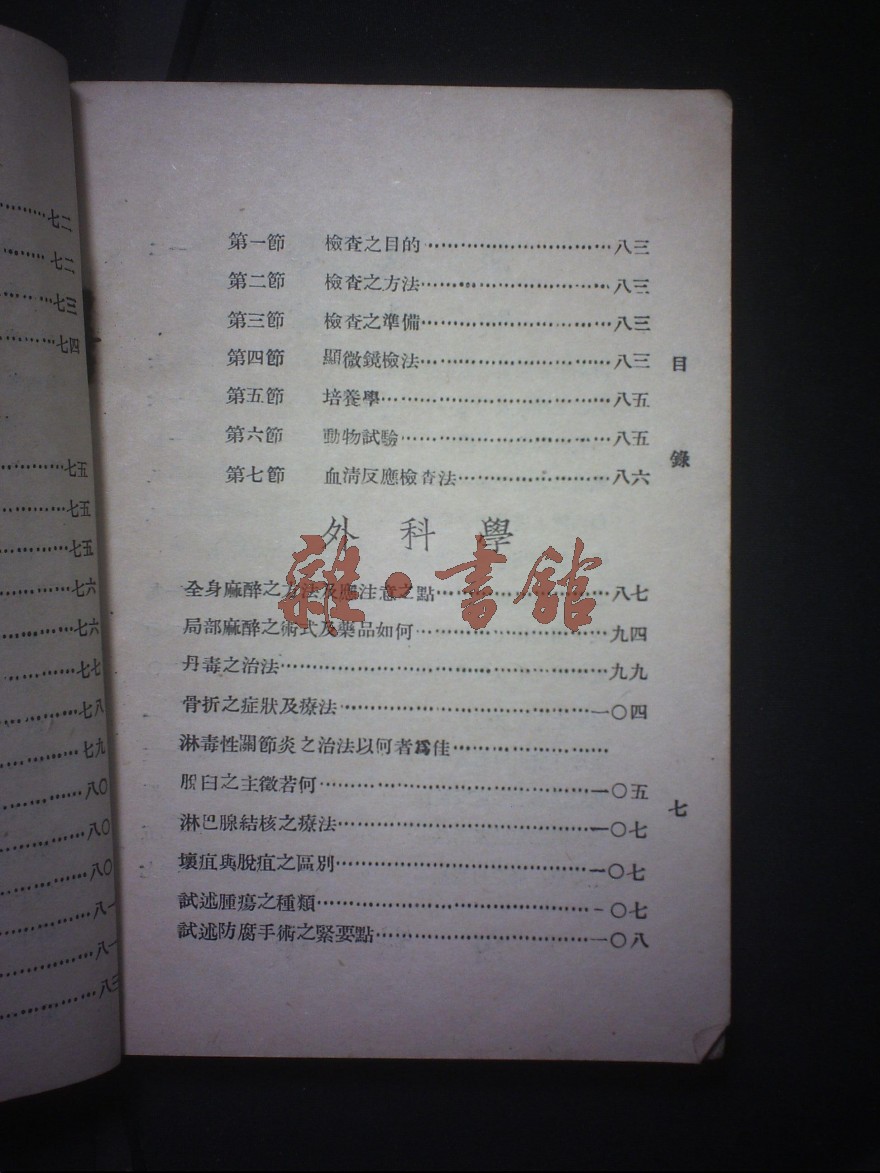 七二
七二
七三
七四
七五
七五
七五
七六
七六
七七
七八
七九
八〇
八〇
八〇
八一
八一
八三
第一節 檢查之目的……………………………八三
第二節 檢查之方法……………………………八三
第三節 檢查之準備……………………………八三
第四節 顯微鏡檢法……………………………八三
第五節 培養學……………………………八五
第六節 動物試驗……………………………八五
第七節 血清反應檢查法……………………………八六
外科學
全身麻醉之方法及應注意之點……………………………八七
局部麻醉之術式及藥品如何……………………………九四
丹毒之治法……………………………九九
骨折之症狀及療法……………………………一〇四
淋毒性關節炎之治法以何者爲佳……………………………
脫臼之主徵若何……………………………一〇五
淋巴腺結核之療法……………………………一〇七
壞疽與脫疽之區別……………………………一〇七
試述腫瘍之種類……………………………一〇七
試述防腐手術之緊要點……………………………一〇八
目錄
七
雜·書館